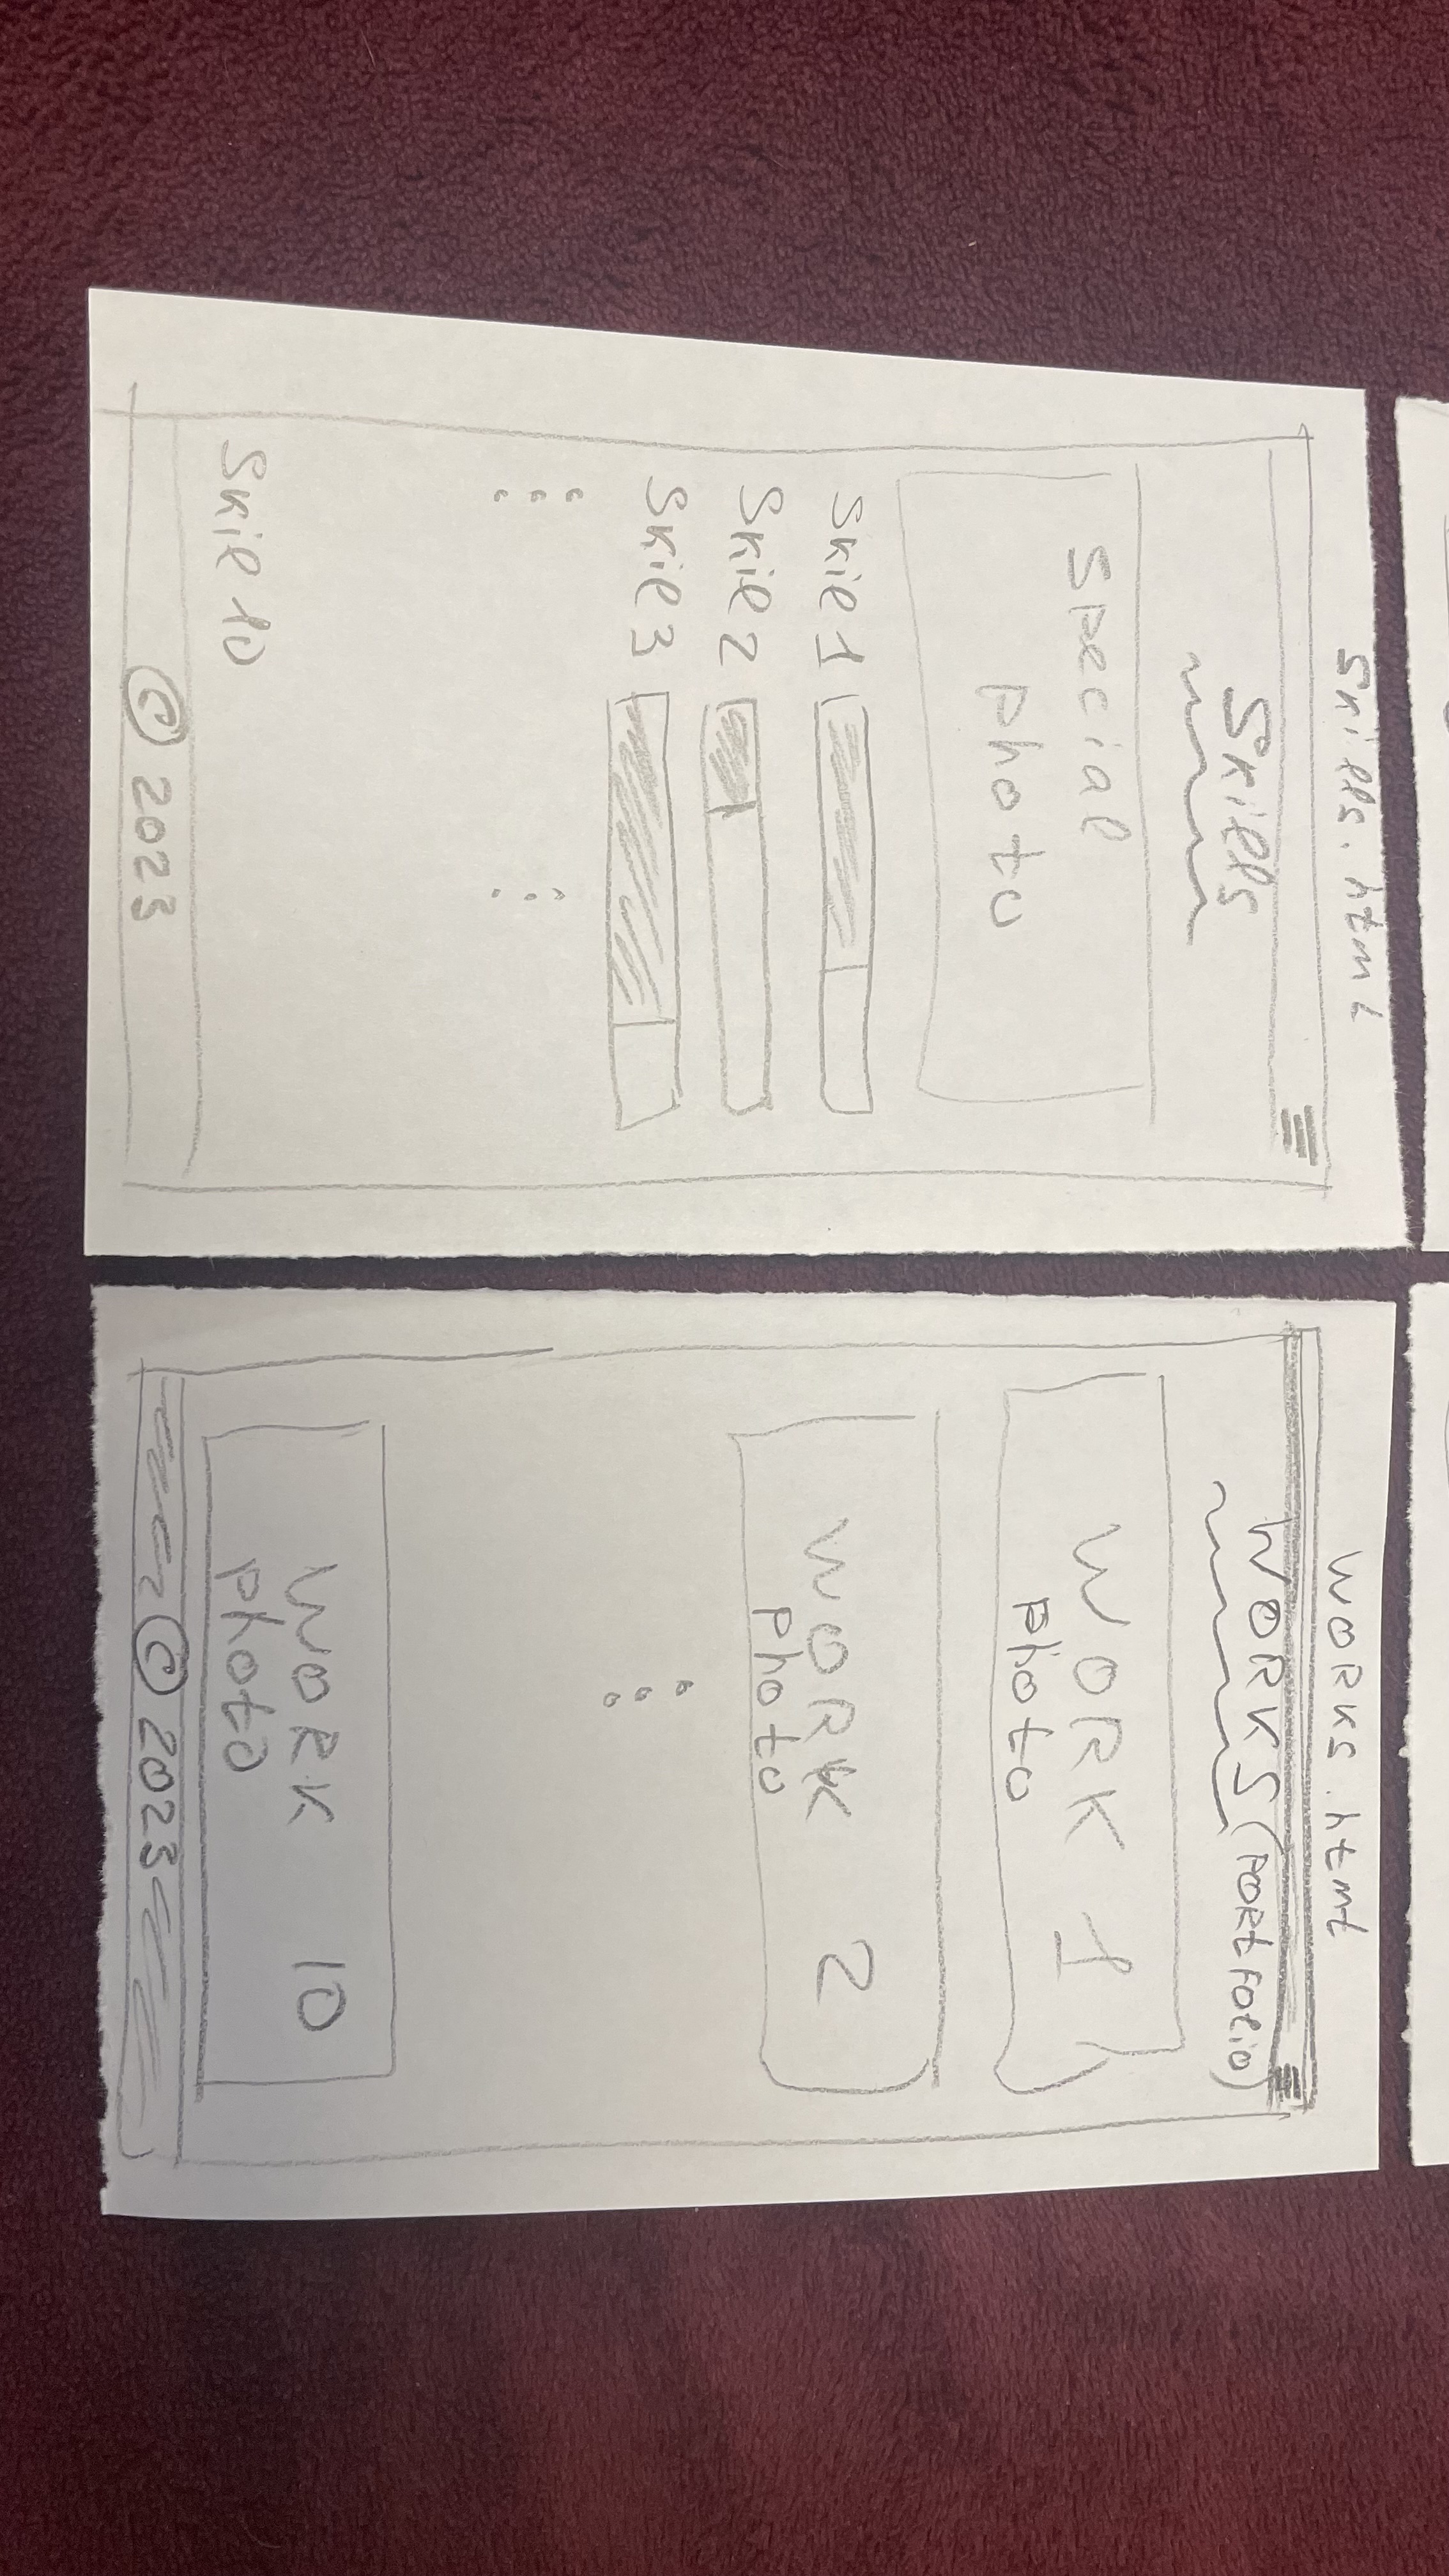 Skills.html
Skills
Special
photo
Skil 1
Skil 2
Skil 3
Skil 10
© 2023
WORKS.html
WORKS (PORtFOlio)
WORK 1
Photo
WORK 2
Photo
WORK 10
photo
© 2023